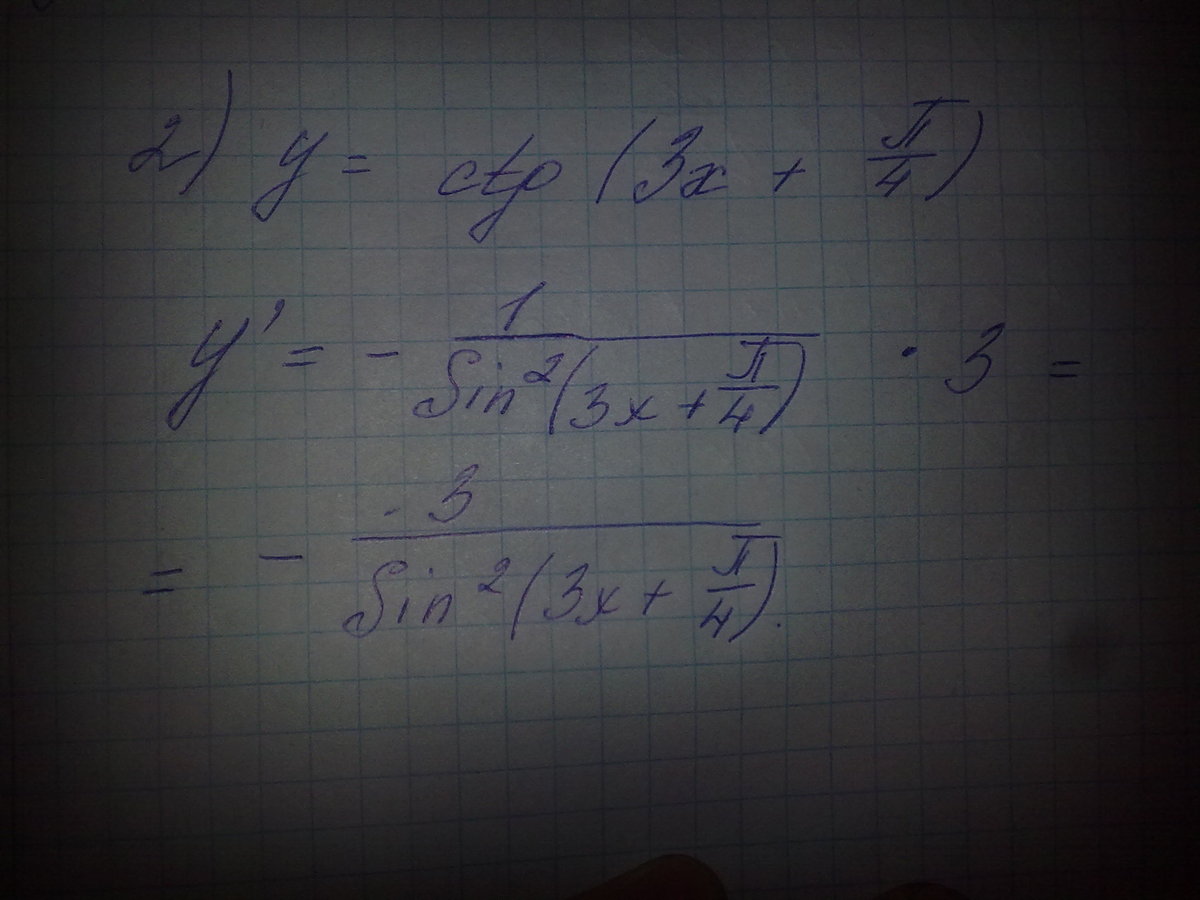 2) y = ctg (3x + π/4)
y' = - 1/Sin²(3x + π/4) · 3 =
= - 3/Sin²(3x + π/4).